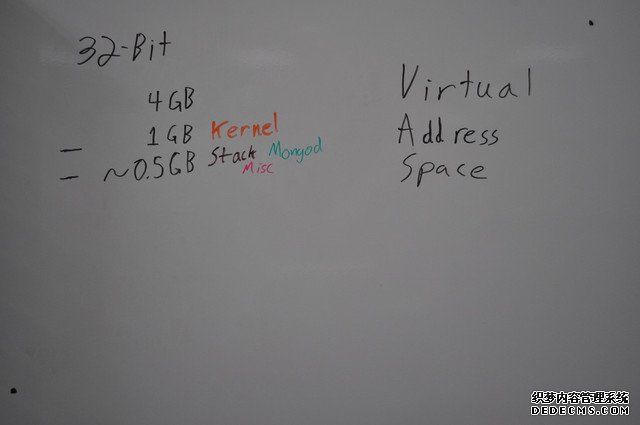 32-Bit
4GB
- 1GB Kernel
- ~0.5GB Stack Mongod
Misc
Virtual
Address
Space
织梦内容管理系统
DEDECMS.COM